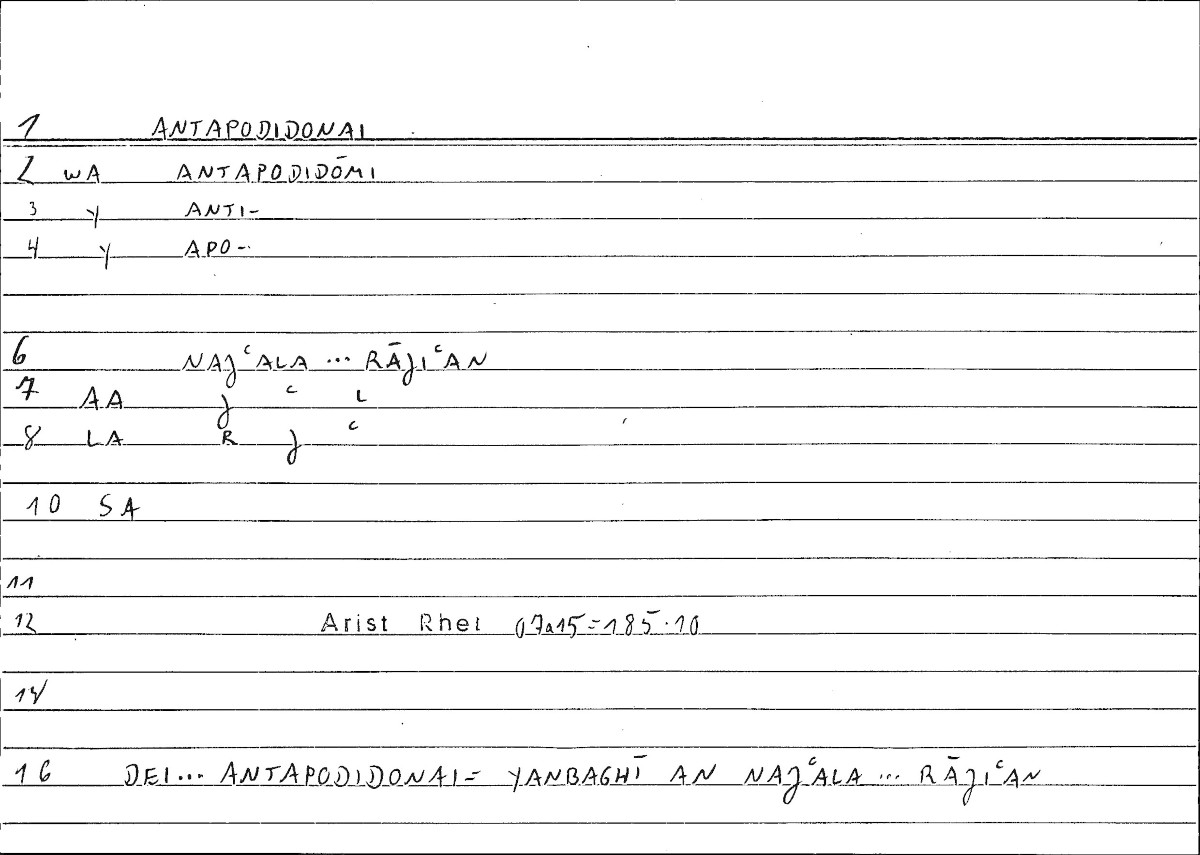 1 ANTAPODIDONAI
2 WA ANTAPODIDŌMI
3 Y ANTI-
4 Y APO-
6 NAJᶜALA ... RĀJIᶜAN
7 AA J ᶜ L
8 LA R J ᶜ
10 SA
11
12 Arist Rhet 07a15=185.10
14
16 DEI... ANTAPODIDONAI= YANBAGHĪ AN NAJᶜALA ... RĀJIᶜAN